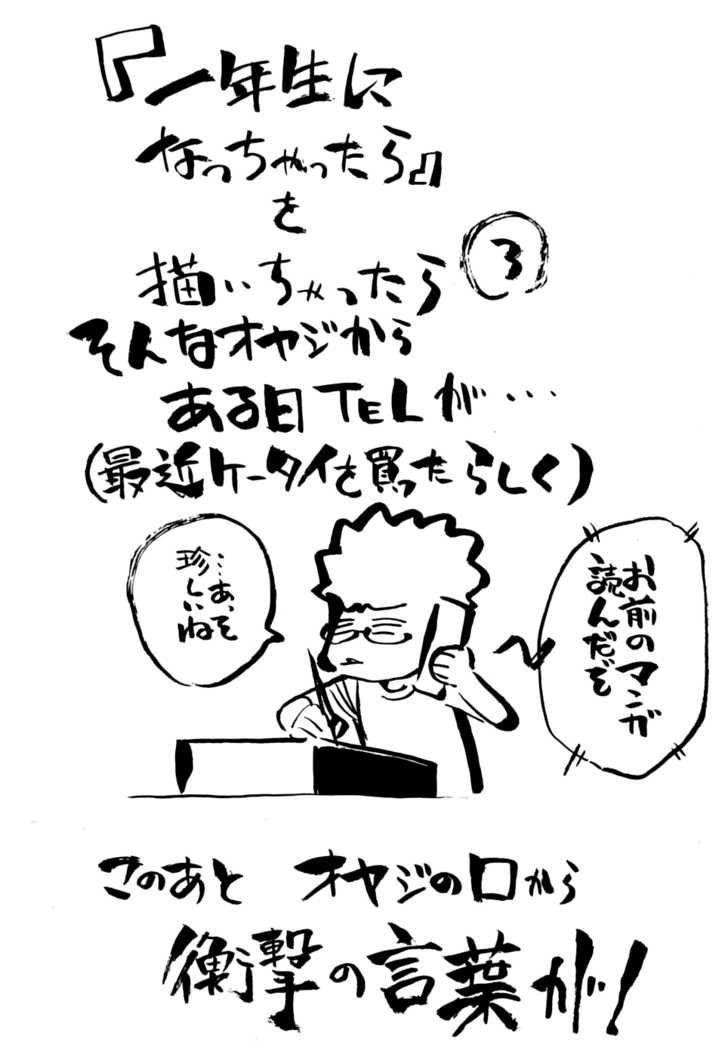 『一年生に
なっちゃったら』
を
描いちゃったら 3
そんなオヤジから
ある日TELが…
(最近ケータイを買ったらしく)
お前のマンガ
読んだぞ
…あ、そ
珍しいね
このあと オヤジの口から
衝撃の言葉が!